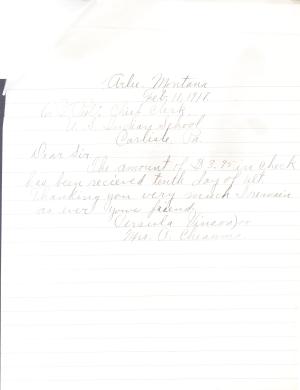 Arlee, Montana
Feb. 11, 1918.
Chief Clerk
U. S. Indian School
Carlisle, Pa.
Dear Sir.
The amount of $ 3.95 in check
has been recieved tenth day of
thanking you very much I remain
as ever your friend,
Ursula
Mrs.